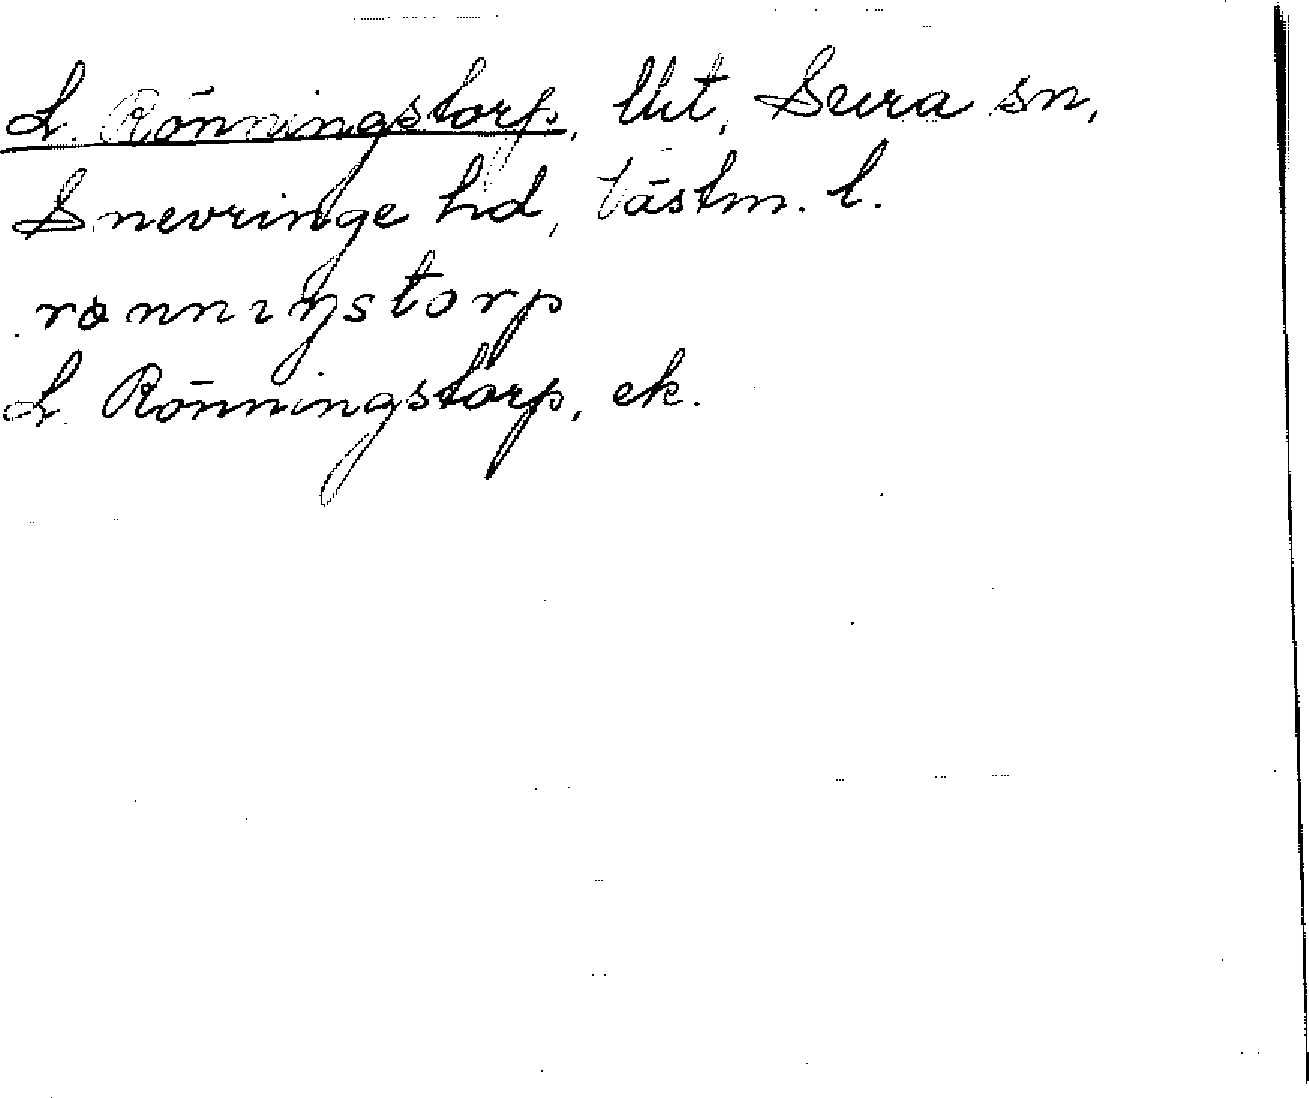 L. Rönningstorp, lht, Sura sn,
Snevringe hd, Västm. l.
rönnıŋstorp
L. Rönningstorp, ek.